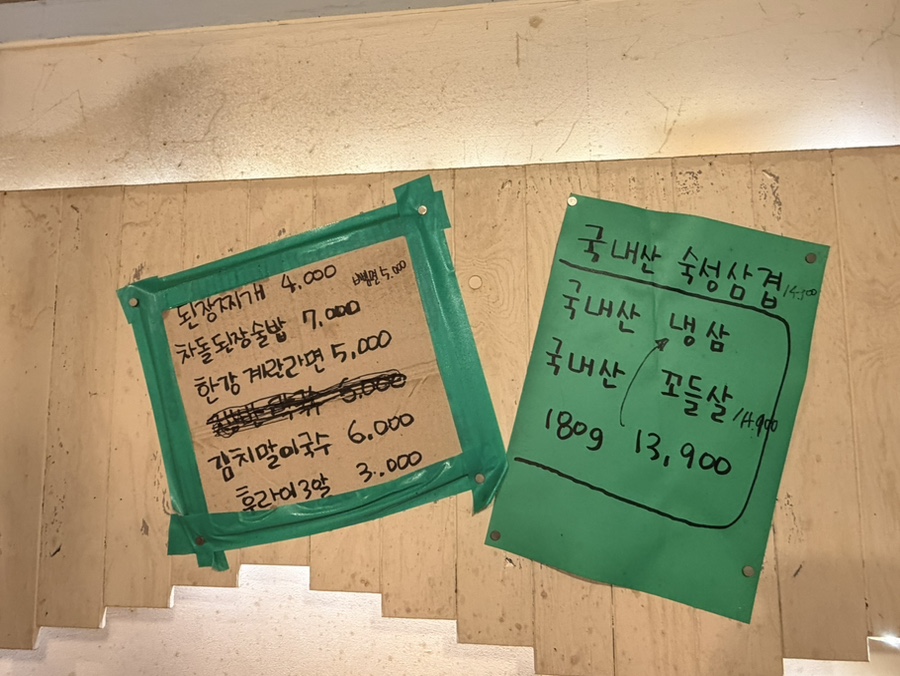 된장찌개 4,000 비빔면 5,000
차돌된장술밥 7,000
한강 계란라면 5,000
6,000
김치말이국수 6,000
후라이 3알 3,000
국내산 숙성삼겹 14,900
국내산 냉삼
국내산 꼬들살 14,900
180g 13,900